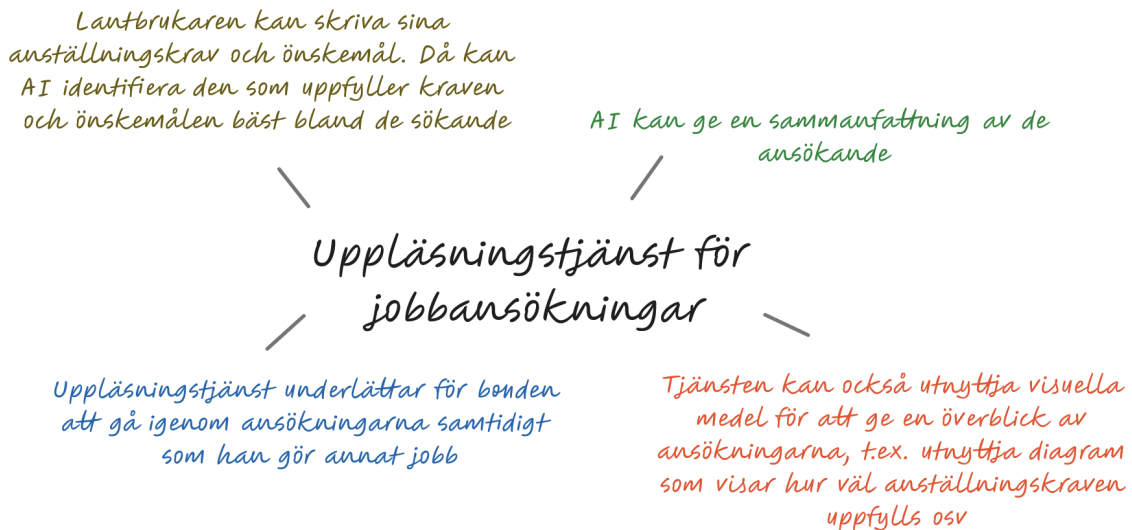 Lantbrukaren kan skriva sina
anställningskrav och önskemål. Då kan
AI identifiera den som uppfyller kraven
och önskemålen bäst bland de sökande
AI kan ge en sammanfattning av de
ansökande
Uppläsningstjänst för
jobbansökningar
Uppläsningstjänst underlättar för bonden
att gå igenom ansökningarna samtidigt
som han gör annat jobb
Tjänsten kan också utnyttja visuella
medel för att ge en överblick av
ansökningarna, t.ex. utnyttja diagram
som visar hur väl anställningskraven
uppfylls osv